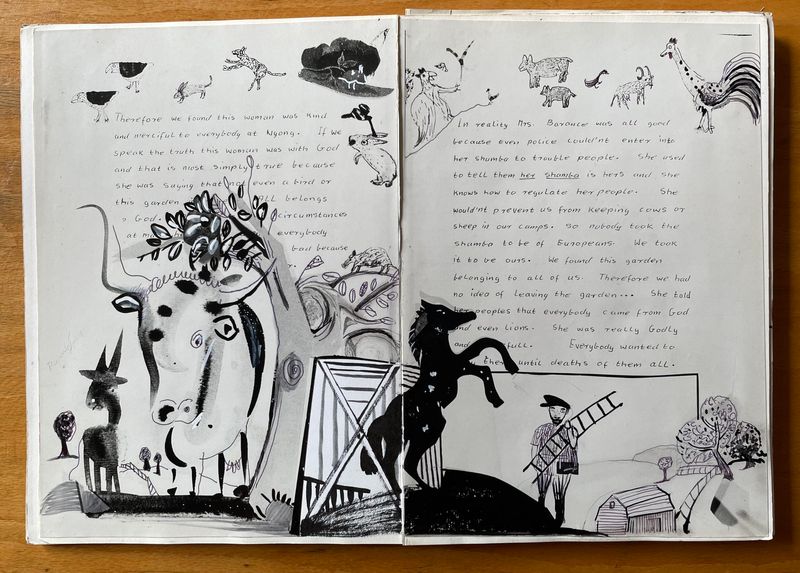 Therefore we found this woman was kind
and merciful to everybody at Nyong. If we
speak the truth this woman was with God
and that is most simply true because
she was saying that not even a bird or
this garden all belongs
God. circumstances
at everybody
bad because
In reality Mrs. Baronce was all good
because even police could'nt enter into
her shamba to trouble people. She used
to tell them her shamba is hers and she
knows how to regulate her people. She
would'nt prevent us from keeping cows or
sheep in our camps. So nobody took the
shamba to be of Europeans. We took
it to be ours. We found this garden
belonging to all of us. Therefore we had
no idea of leaving the garden... She told
her peoples that everybody came from God
and even lions. She was really Godly
and full. Everybody wanted to
them until deaths of them all.